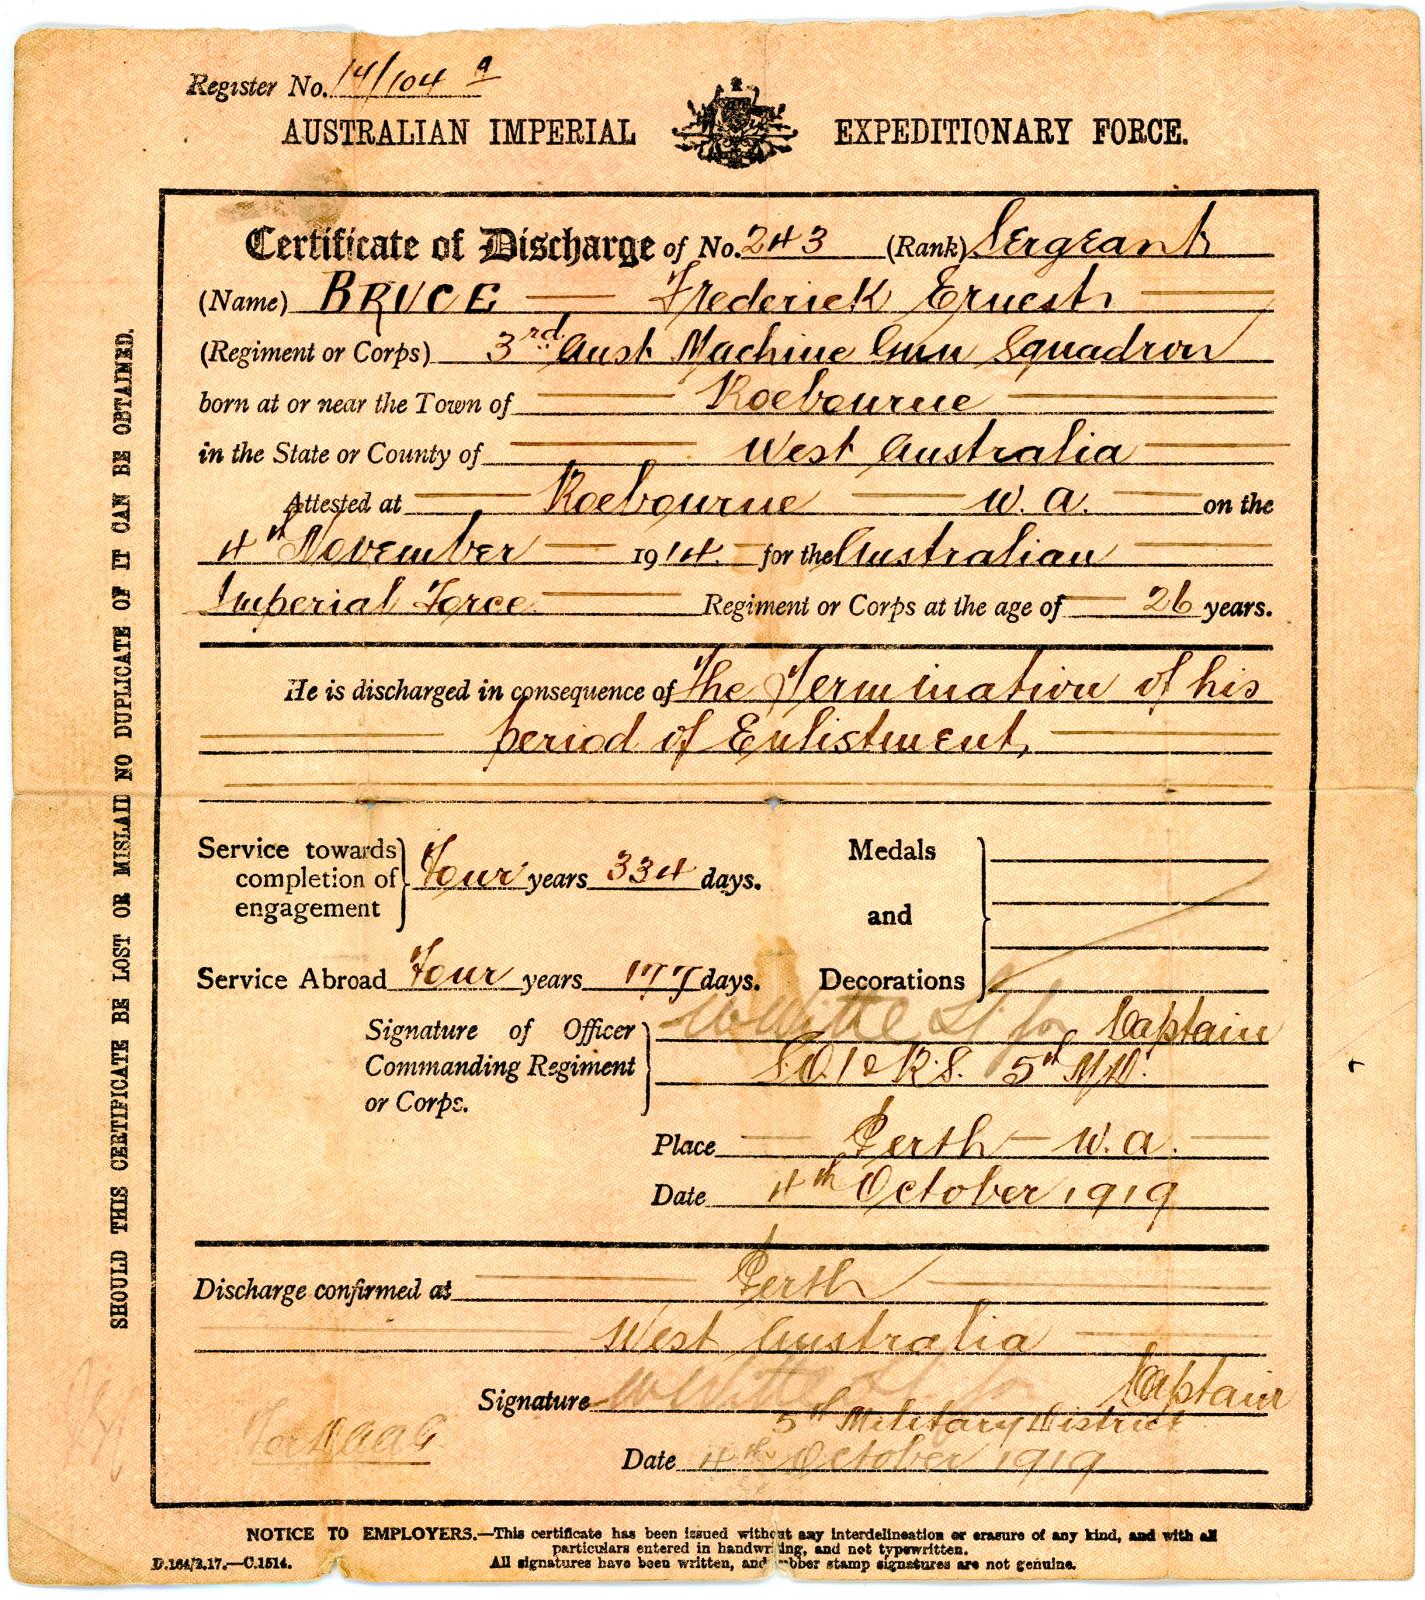 Register No. 14/104 a
AUSTRALIAN IMPERIAL EXPEDITIONARY FORCE.
Certificate of Discharge of No. 243 (Rank) Sergeant
(Name) BRUCE — Frederick Ernest —
(Regiment or Corps) 3rd Aust Machine Gun Squadron
born at or near the Town of — Roebourne —
in the State or County of — West Australia —
Attested at — Roebourne — W. A. — on the
4th November — 1914. — for the Australian —
Imperial Force — Regiment or Corps at the age of — 26 years.
He is discharged in consequence of The Termination of his
— period of Enlistment, —
Service towards completion of engagement } Four years 334 days.
Medals and Decorations }
Service Abroad Four years 177 days.
Signature of Officer Commanding Regiment or Corps. } Lt for Captain
5th M.D.
Place — Perth — W. A. —
Date 4th October 1919
Discharge confirmed at — Perth —
— West Australia —
Signature Captain
5th Military District
Date 4th October 1919
SHOULD THIS CERTIFICATE BE LOST OR MISLAID NO DUPLICATE OF IT CAN BE OBTAINED.
NOTICE TO EMPLOYERS.—This certificate has been issued without any interdelineation or erasure of any kind, and with all
particulars entered in handwriting, and not typewritten.
D.164/2.17.—C.1514. All signatures have been written, and rubber stamp signatures are not genuine.